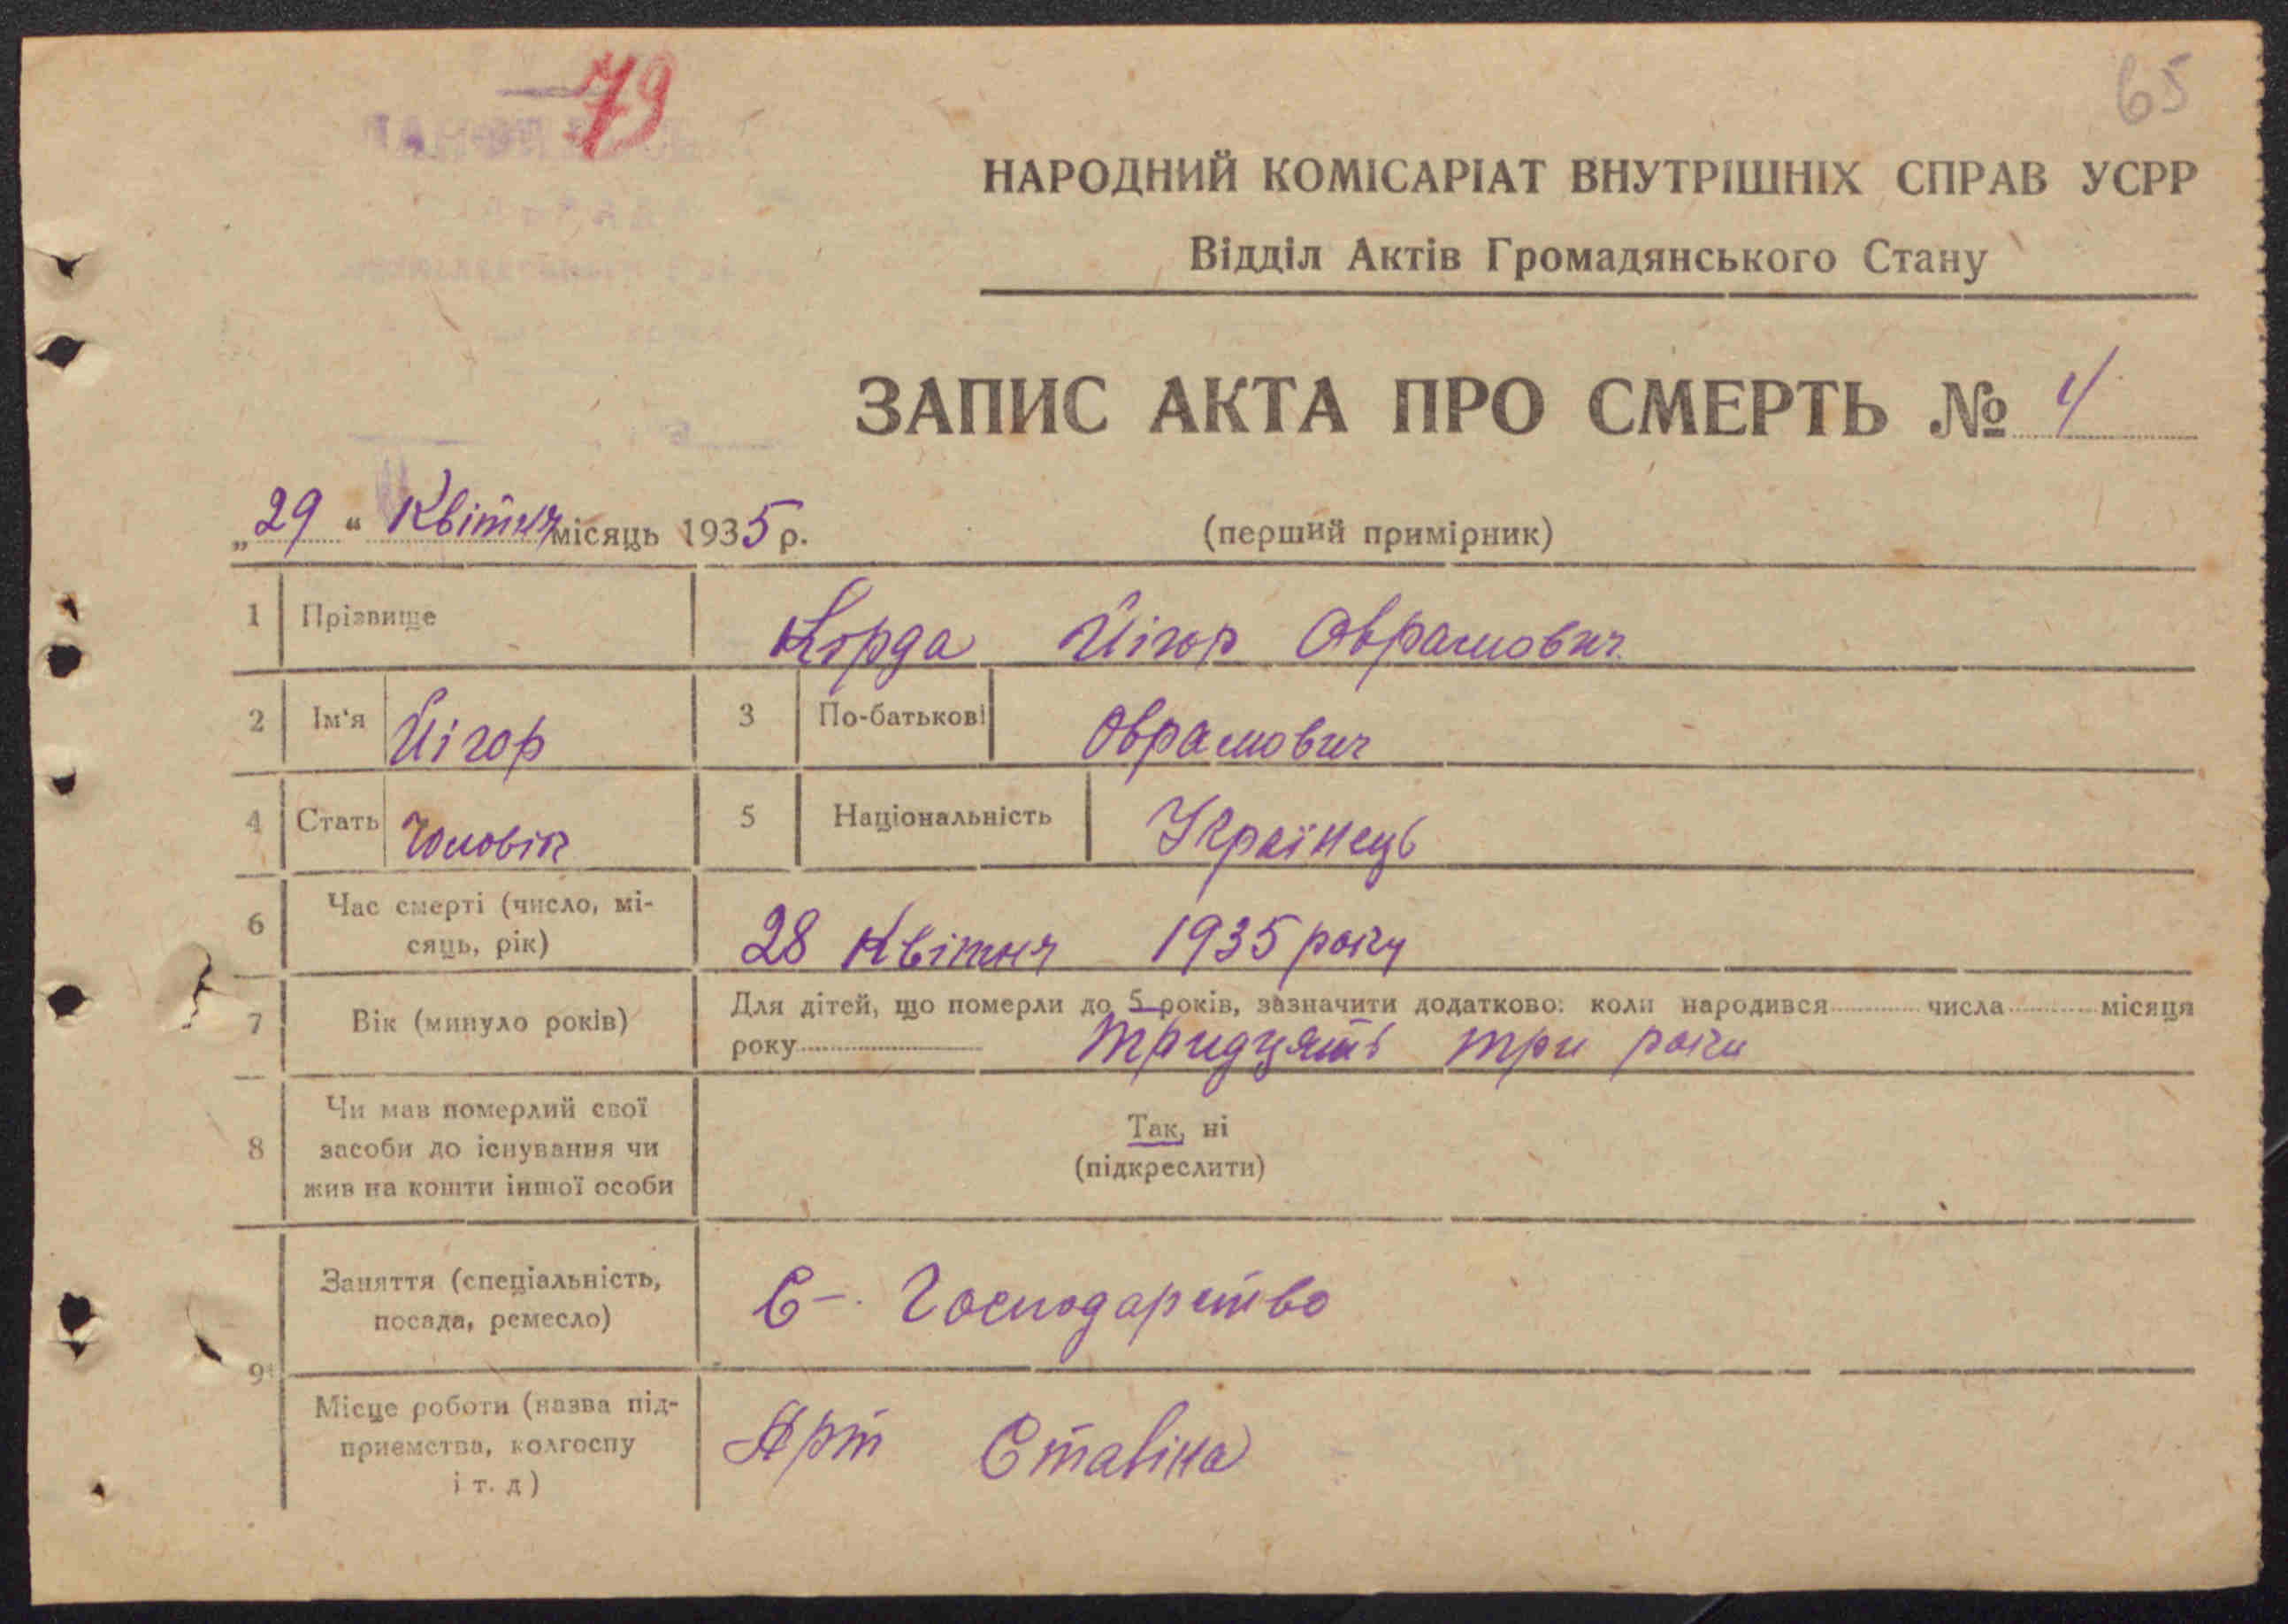 79
65
НАРОДНИЙ КОМІСАРІАТ ВНУТРІШНІХ СПРАВ УСРР
Відділ Актів Громадянського Стану
ЗАПИС АКТА ПРО СМЕРТЬ № 4
„29“ Квітня місяць 1935 р. (перший примірник)
1 Прізвище Корда Йігор Оврамович
2 Ім'я Йігор 3 По-батькові Оврамович
4 Стать Чоловік 5 Національність Українець
6 Час смерті (число, мі-
сяць, рік) 28 Квітня 1935 року
7 Вік (минуло років) Для дітей, що померли до 5 років, зазначити додатково: коли народився числа місяця
року тридцять три роки
8 Чи мав померлий свої
засоби до існування чи
жив на кошти іншої особи
Так, ні
(підкреслити)
9 Заняття (спеціальність,
посада, ремесло) С-. Господарство
Місце роботи (назва під-
приемства, колгоспу
і т. д) Арт Сталіна